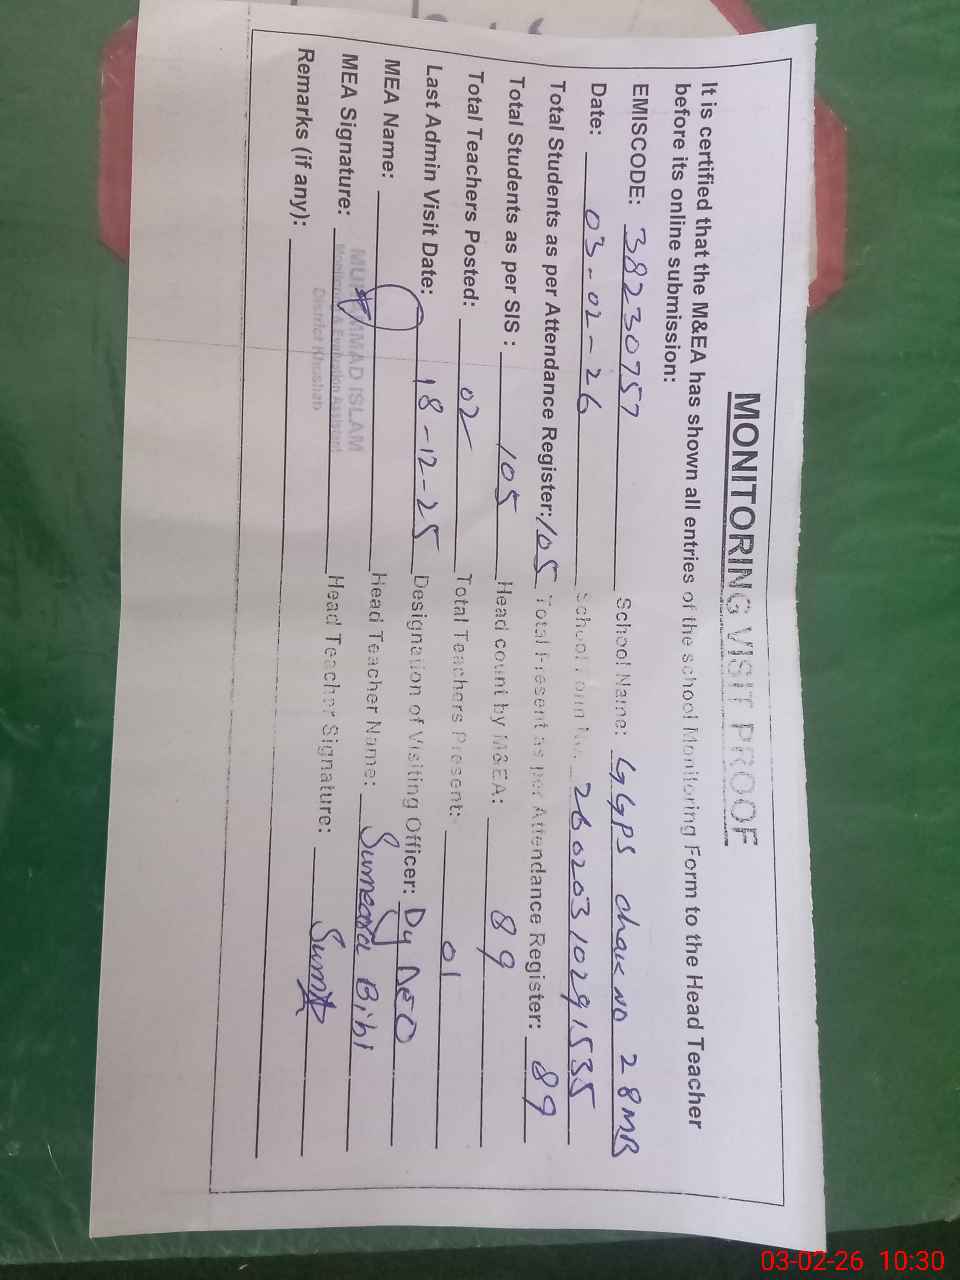 MONITORING VISIT PROOF
It is certified that the M&EA has shown all entries of the school Monitoring Form to the Head Teacher
before its online submission:
EMISCODE: 38230757 School Name: GGPS chak NO 28MB
Date: 03-02-26 School Form No. 26020310291535
Total Students as per Attendance Register: 105 Total Present as per Attendance Register: 89
Total Students as per SIS : 105 Head count by M&EA: 89
Total Teachers Posted: 02 Total Teachers Present: 01
Last Admin Visit Date: 18-12-25 Designation of Visiting Officer: Dy DEO
MEA Name: Head Teacher Name: Sumeara Bibi
MUHAMMAD ISLAM
Monitoring & Evaluation Assistant
District Khushab
MEA Signature: Head Teacher Signature:
Remarks (if any):
03-02-26 10:30